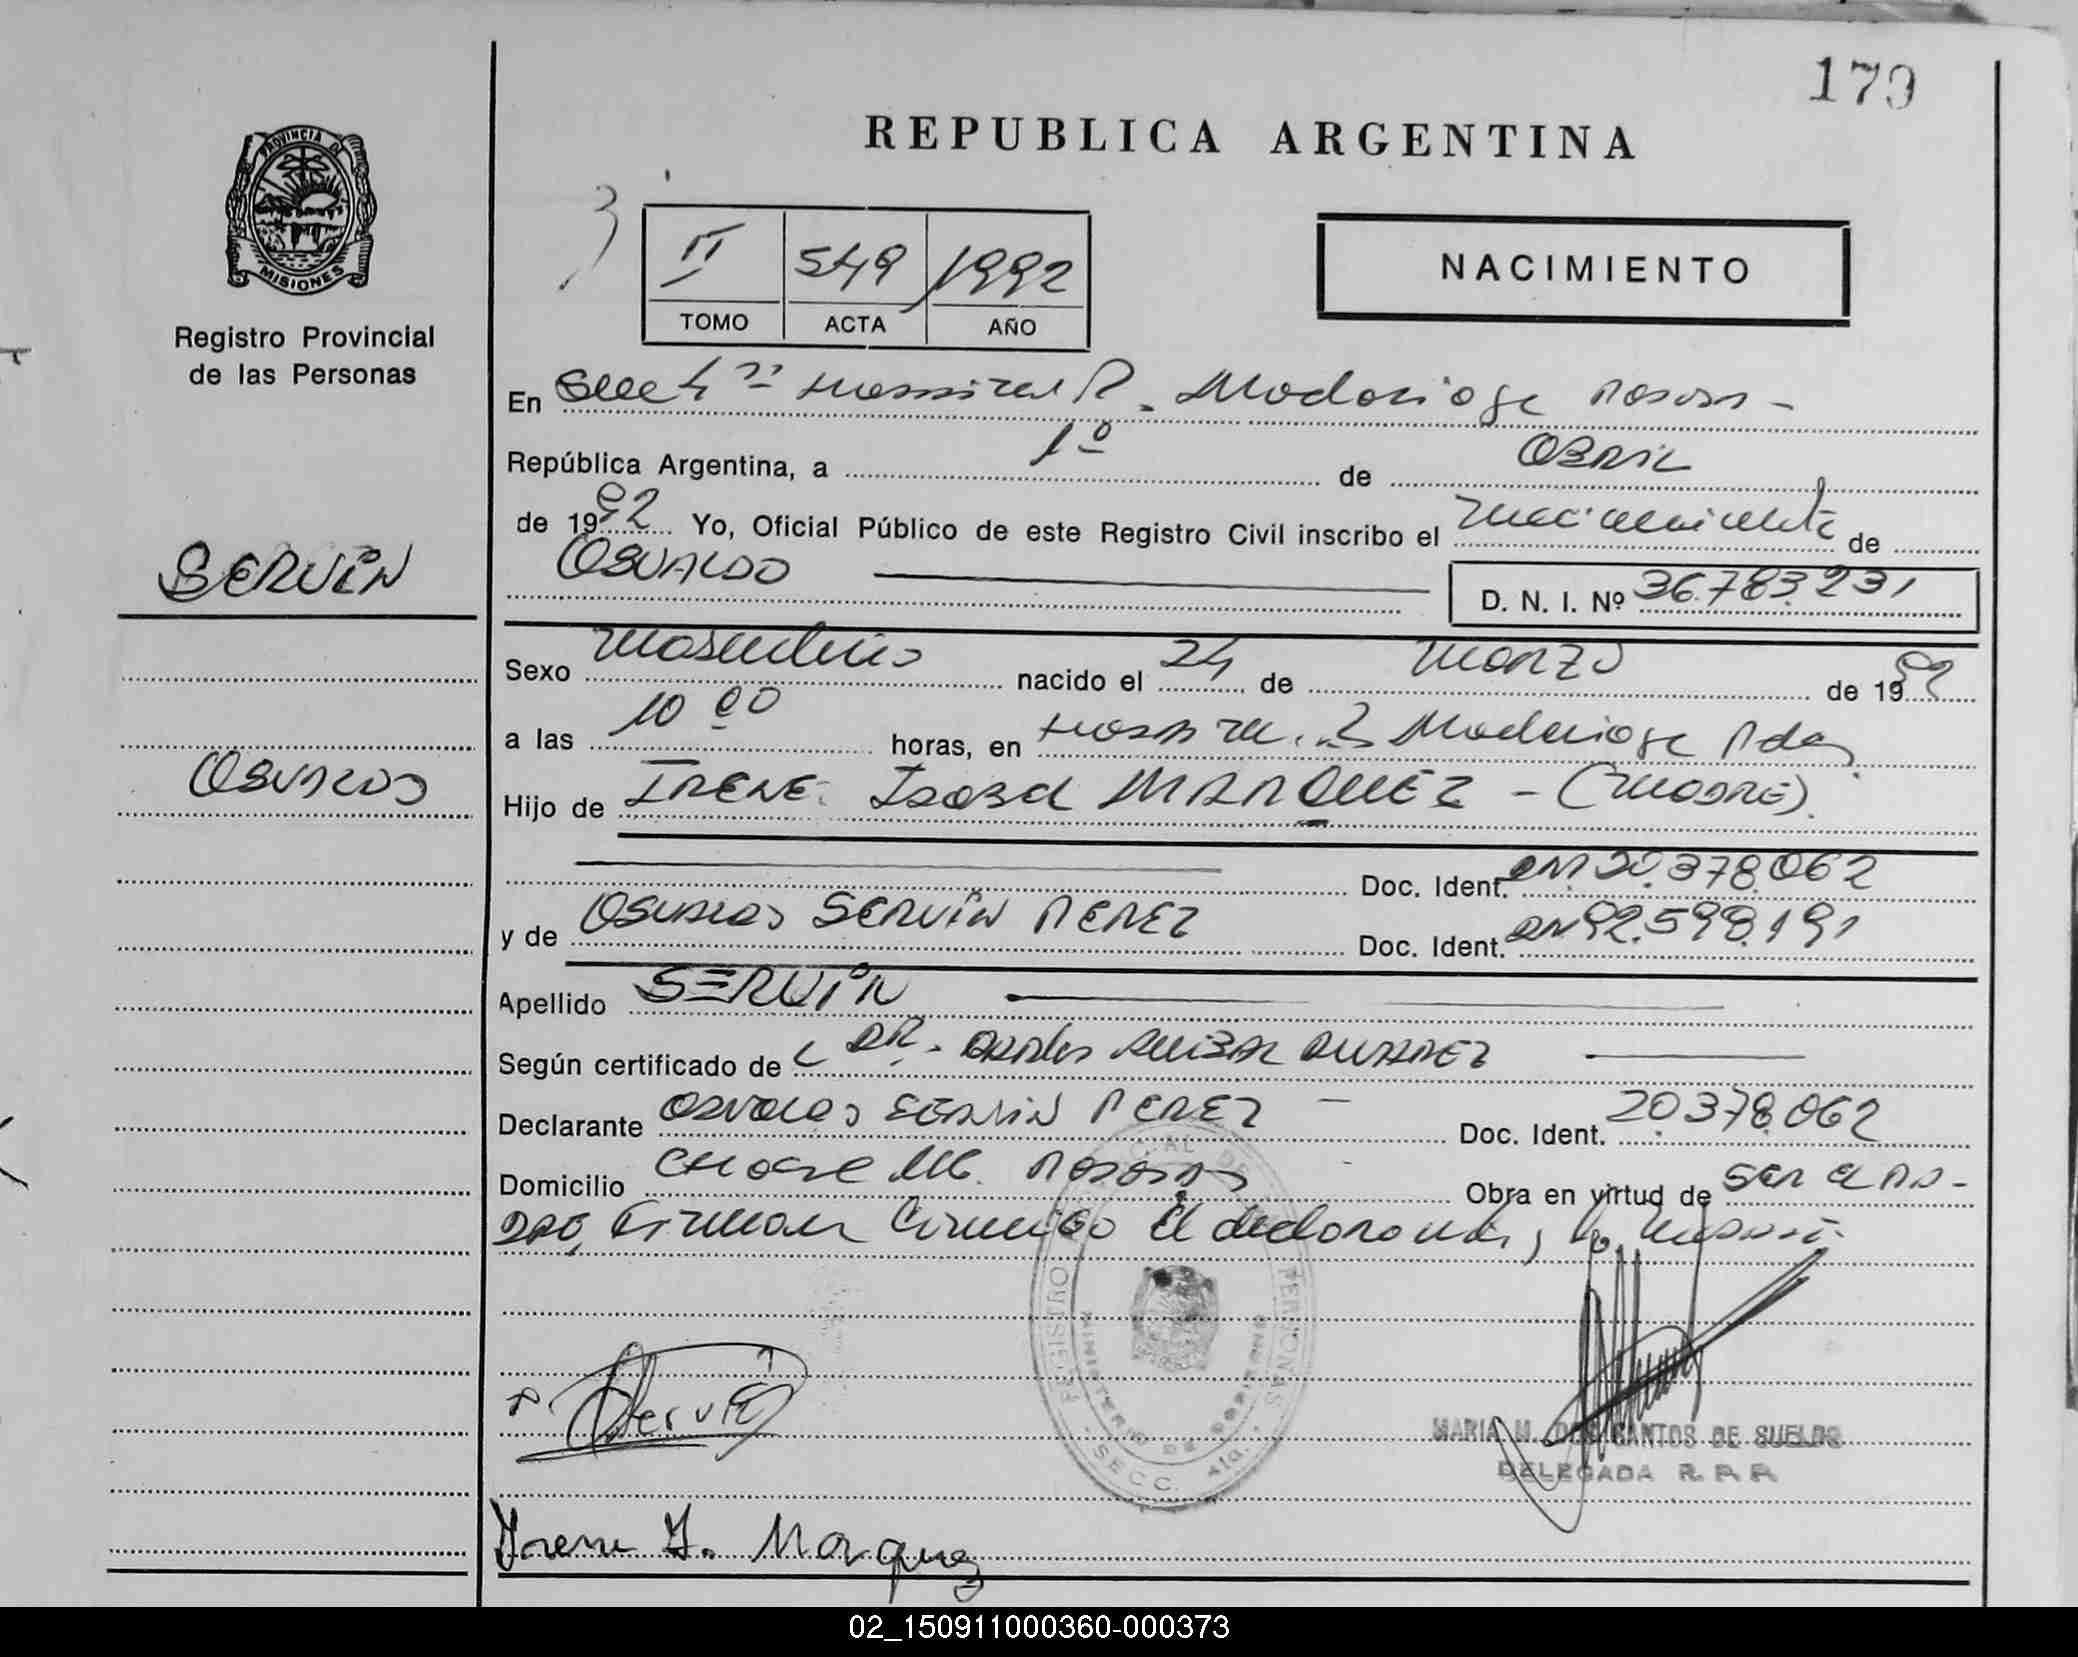 170
REPUBLICA ARGENTINA
PROVINCIA DE
MISIONES
Registro Provincial
de las Personas
II 549 1992
TOMO ACTA AÑO
NACIMIENTO
En Secc 4ta Hospital R. Madariaga Posadas -
República Argentina, a 1º de Abril
de 1992 Yo, Oficial Público de este Registro Civil inscribo el nacimiento de
OSVALDO D. N. I. Nº 36.783.231
SERVÍN
Sexo masculino nacido el 24 de marzo de 1992
a las 10 00 horas, en Hospital R Madariaga Pdas
OSVALDO
Hijo de IRENE Isabel MARQUEZ - (madre).
Doc. Ident. DNI 20.378.062
y de OSVALDO SERVÍN PEREZ Doc. Ident. DNI 92.598.191
Apellido SERVÍN
Según certificado de DR. Carlos Anibal ALVAREZ
Declarante OSVALDO SERVIN PEREZ - Doc. Ident. 20.378.062
Domicilio Posadas Obra en virtud de ser el pa-
dre, Firman conmigo el declarante y la madre.
REGISTRO PROVINCIAL DE LAS PERSONAS
MINISTERIO DE GOBIERNO
SECC. 4ta.
Servín
MARIA M. DOS SANTOS DE SUELDO
DELEGADA R. P. P.
Irene I. Marquez
02_150911000360-000373